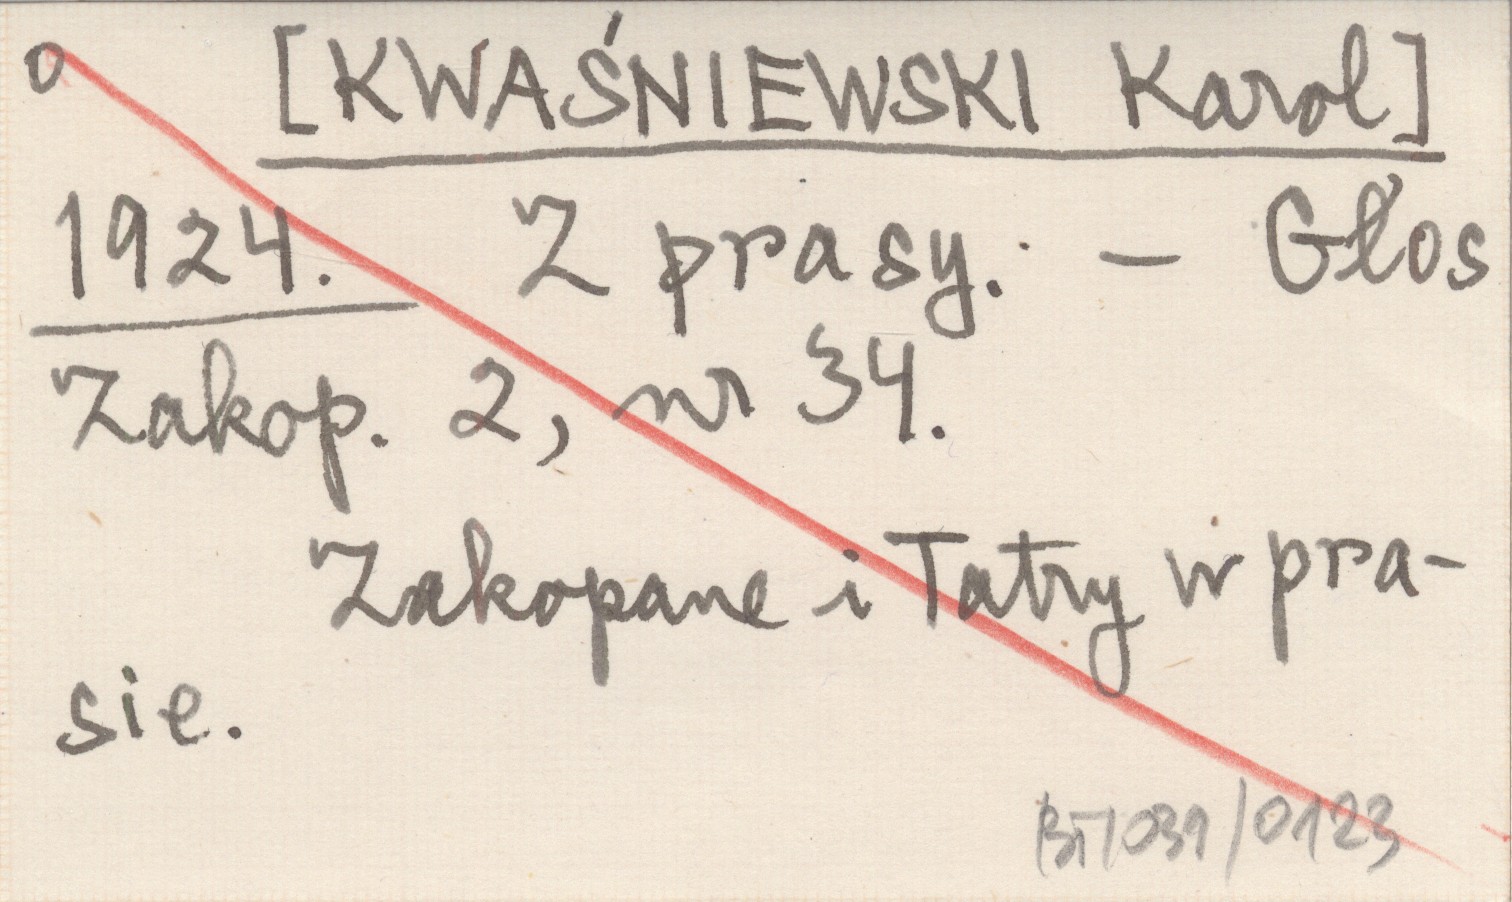 o [KWAŚNIEWSKI Karol]
1924. Z prasy. – Głos
Zakop. 2, nr 34.
Zakopane i Tatry w pra-
sie.
BT/039/0123